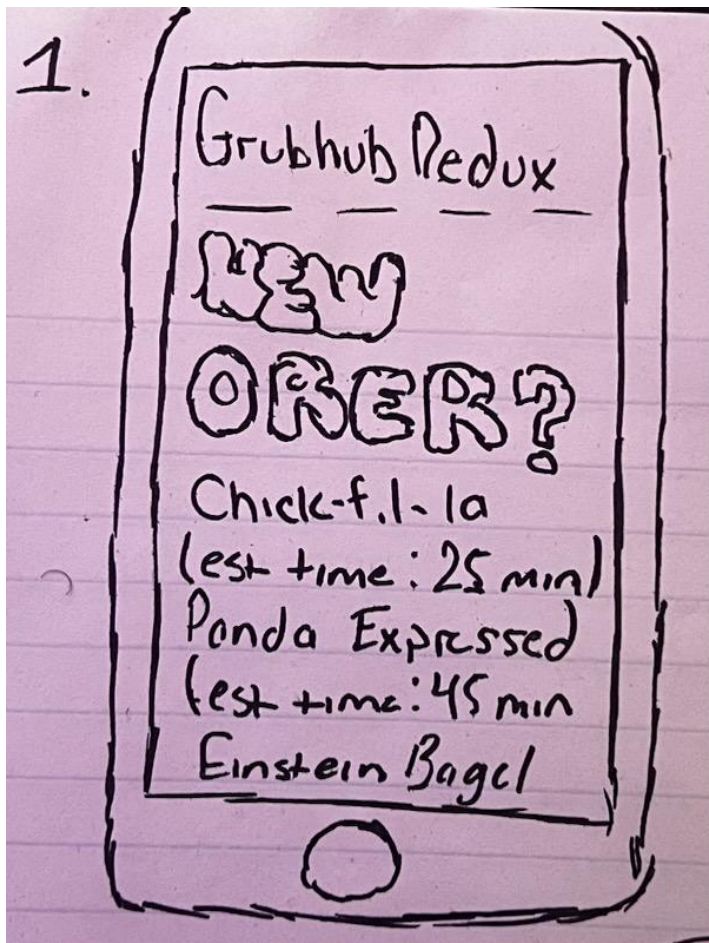 1.
Grubhub Redux
NEW
ORER?
Chick-fil-la
(est time: 25 min)
Panda Expressed
(est time: 45 min
Einstein Bagel